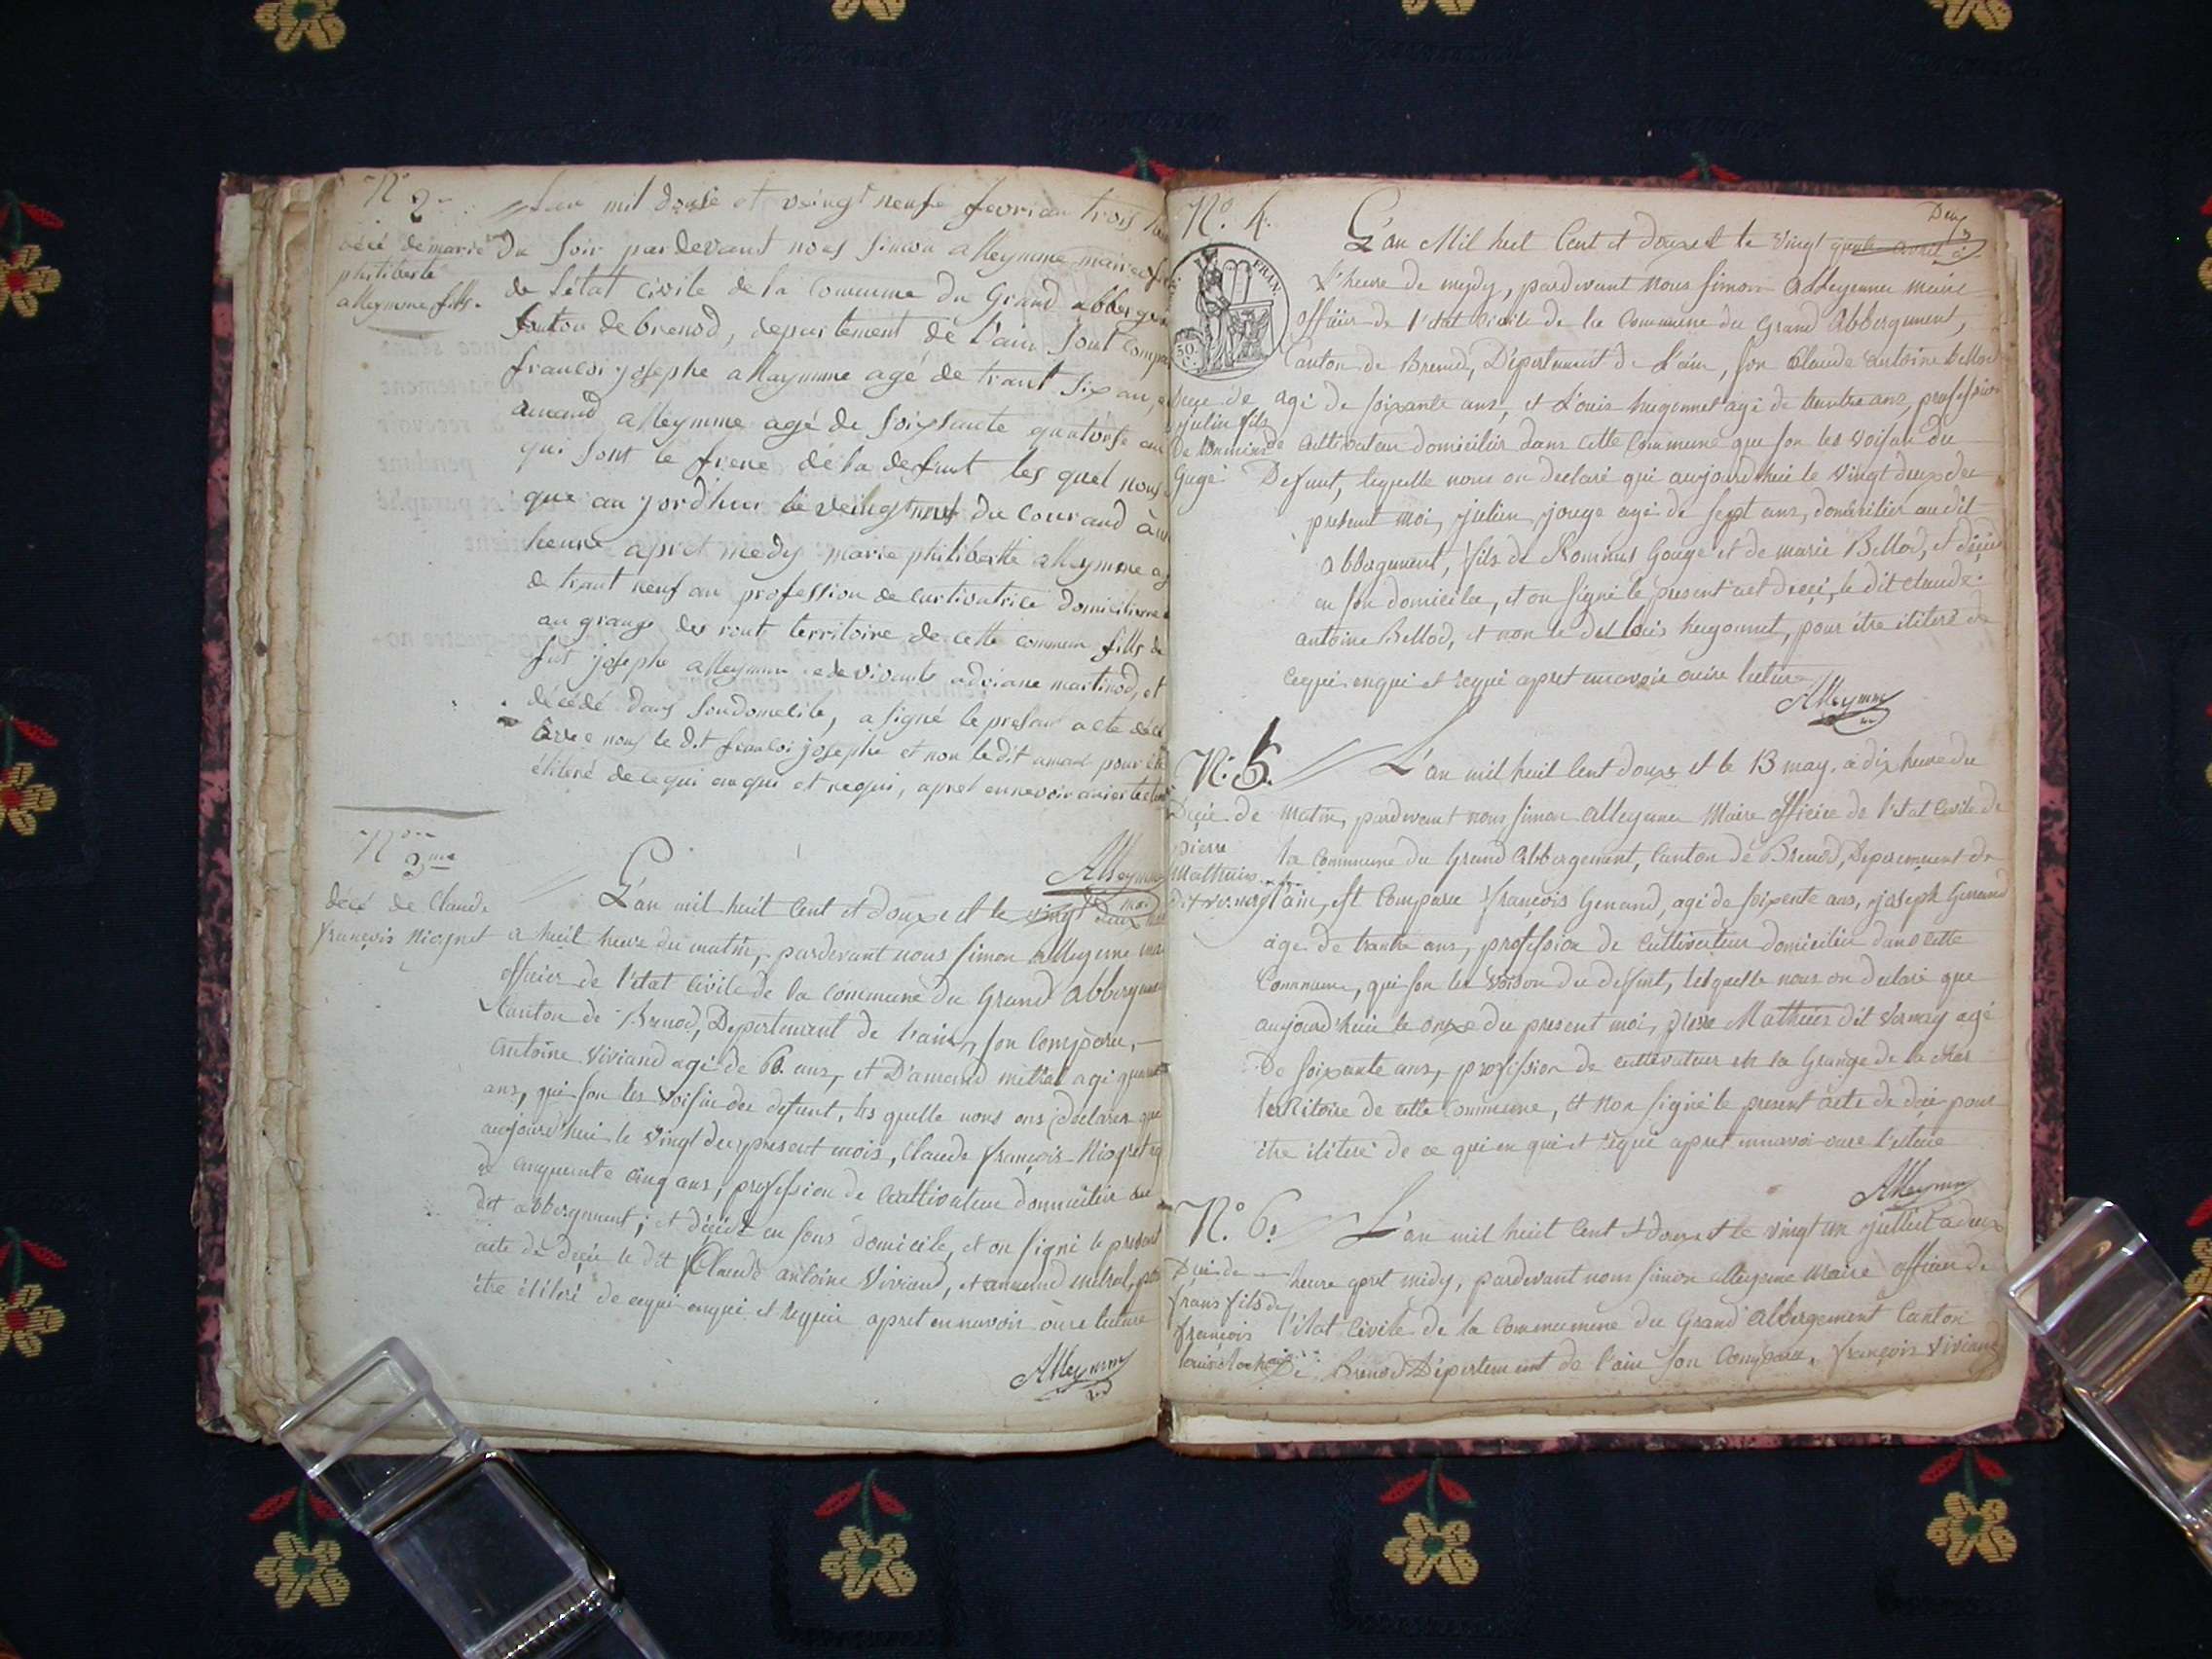 N° 2
décé de marie
philiberte
alleymme fille.
mil douse et veingt neufe fevrier trois
du soir par devant nous simon alleymme maire
de l'état civile de la commune du Grand abberge
canton de brenod, departement de l'ain sont compa
francoi josephe alleymme agé de trant six an,
amand alleymme agé de soixsante quatorse an
qui sont le frere de la defunt les quel nous
que au jord'huis le veingt neuf du courand à
heure apret medy marie philiberthe alleymme
de trant neuf an profession de curtivatrice domiciliere
au grange des rout territoire de cette commun fille de
fut josephe alleymme e de vivante adriane martinod, et
décédé dans son domicile, a signé le presan acte décé
avec nous le dit francoi josephe et non le dit amand pour
élitéré de ce qui enqui et requi, apret
Alleymme
N° 3me
décé de Claude
françois Niogret
L'an mil huit Cent et douze et le vingt deux
a huit heure du matin, pardevant nous simon alleymme
officier de l'état Civile de la commune du Grand abbergement
Canton de Brenod, Departement de l'ain, son Comparu,
antoine Viviand agé de 60 ans, et D'amand métral agé
ans, qui son les voisin des defunt, les quelle nous ons declaré que
aujourd'hui le vingt du present mois, Claude françois Niogret
de cinquante cinq ans, profession de Cultivateur domicilier au
dit abbergement; et décédé en sons domicile, et on signé le present
acte de decée le dit Claude antoine Viviand, et amand métral, pour
être élitéré de cequi enqui et requi apret en navoir oure lecture
Alleymme
N° 4.
de
julin fils
de Rominus
Gugé
Deux
L'an Mil huit Cent et douze et le vingt avril à
l'heure de medy, pardevant nous simon Alleymme maire
officier de l'état Civile de la Commune du Grand Abbergement,
Canton de Brenod, Département de L'ain, son Claude antoine Bellod
agé de soixante ans, et Louis hugonnet agé de trente ans, profession
de cultivateur domicilier dans cette Commune que son les voisin du
Defunt, lequelle nous on declaré qui aujourd'huie le vingt deux du
present moi, julien jouge agé de sept ans, domicilier audit
abbergement, fils de Rominus Gouge et de marie Bellod, et
en son domicilee, et on signé le present act decé, le dit claude
antoine Bellod, et non le dit louis hugonnet, pour être élitéré de
cequi enqui et requi apret ennavoir ouire lecture
Alleymme
N° 5.
Décié de
pierre
Mathieu
dit vernay
L'an mil huit Cent douze et le 13 may, à dix heure du
matin, pardevant nous simon alleymme Maire officier de l'etat Civile de
la Commune du Grand Abbergement, Canton de Brenod, Departement de
l'ain, est Comparue françois Genand, agé de soixente ans, joseph Genand
age de trante ans, profession de Cultivateur domicilier dans cette
Commune, qui son les voison du defunt, lesquelle nous on declaré que
aujourd'huie le onze du present moi, pierre Mathieu dit vernay agé
de soixante ans, profession de cultivateur en la Grange de la
territoire de cette Commune, et non signé le present acte de décé pour
être élitéré de ce qui en qui et requi apret ennavoi oure lecture
Alleymme
N° 6.
Décé de
frans fils de
françois
louis
L'an mil huit Cent et douze et le vingt un julliet a deux
heure apret midy, pardevant nous simon alleymme maire officier de
l'état Civile de la Commune du Grand Abbergement Canton
De Brenod Département de l'ain son Comparu, françois Viviand
FRAN.
50. C.